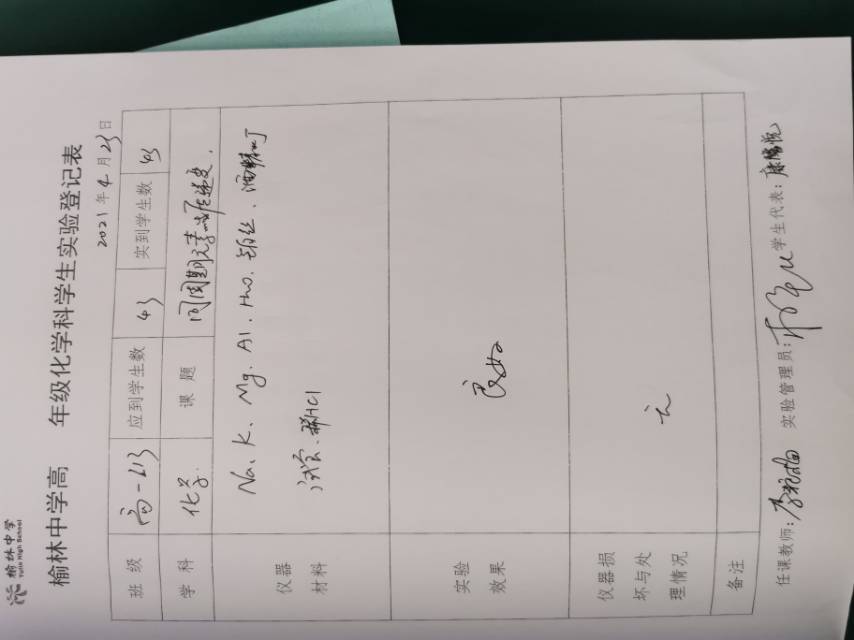 榆林中学
Yulin High School
榆林中学高 年级化学科学生实验登记表
2021年4月23日
班级 高一 应到学生数 43 实到学生数 43
学科 化学 课题 同周期元素 递变
仪器
材料
Na、K、Mg、Al、H₂O、铂丝、酒精灯
试管、稀HCl
实验
效果
良好
仪器损
坏与处
理情况
无
备注
任课教师: 实验管理员: 学生代表: